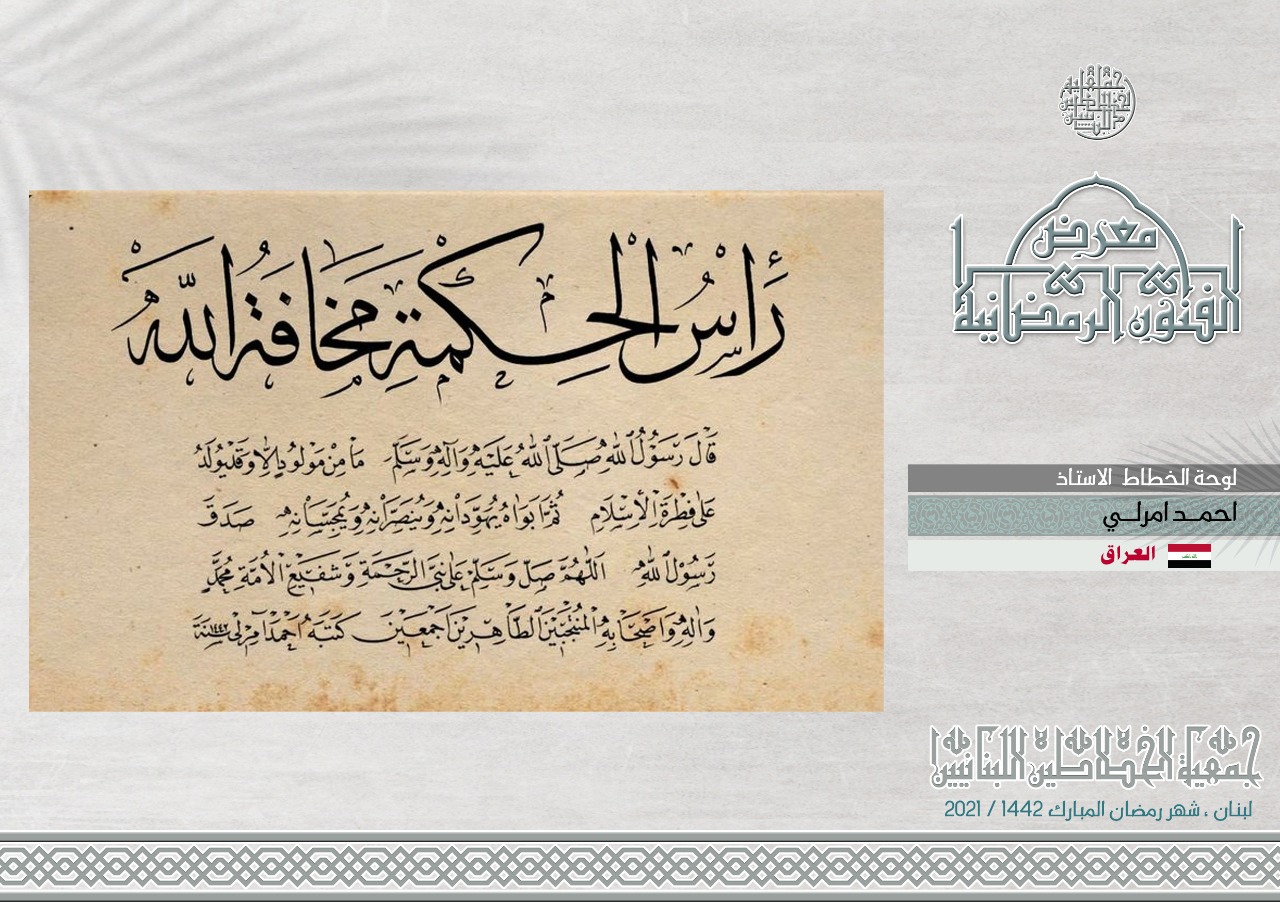 معرض
الفنون الرمضانية
رَأْسُ الْحِكْمَةِ مَخَافَةُ اللّٰهِ
قَالَ رَسُوْلُ اللهِ صَلَّى اللهُ عَلَيْهِ وَآلِهِ وَسَلَّمَ مَا مِنْ مَوْلُودٍ إِلا وَقَدْ يُولَدُ
عَلى فِطْرَةِ الْإِسْلَامِ ثُمَّ أَبَوَاهُ يُهَوِّدَانِهِ وَيُنَصِّرَانِهِ وَيُمَجِّسَانِهِ صَدَقَ
رَسُوْلُ اللهِ اَللّٰهُمَّ صَلِّ وَسَلِّمْ عَلى نَبِيِّ الرَّحْمَةِ وَشَفِيْعِ الْأُمَّةِ مُحَمَّدٍ
وَاٰلِهِ وَاَصْحَابِهِ الْمُنْتَجَبِيْنَ الطَّاهِرِيْنَ اَجْمَعِيْنَ كَتَبَهُ اَحْمَدْ آمِرْلِي سَنَةَ ١٤٤٢
لوحة الخطاط الاستاذ
احمد امرلي
العراق
جمعية الخطاطين اللبنانيين
لبنان ، شهر رمضان المبارك 1442 / 2021